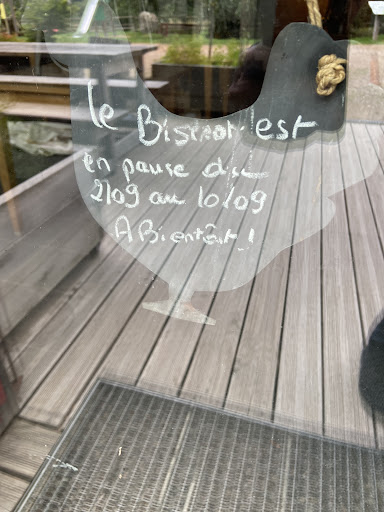 Le Bistrot est
en pause du
2/09 au 10/09
A Bientôt !